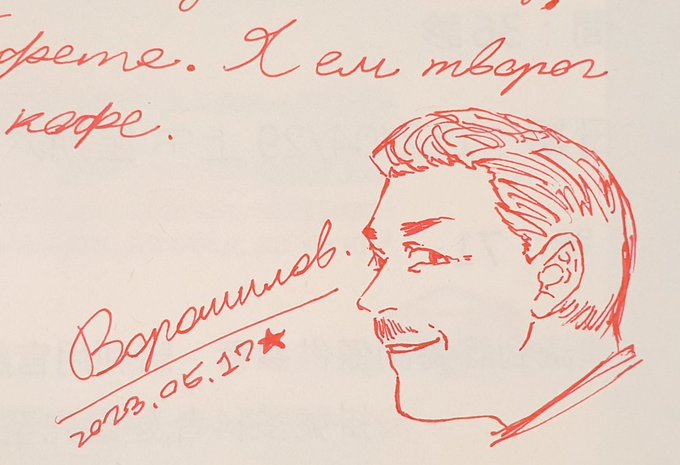 фете. Я ем творог
кофе.
Ворошилов.
2023.05.17★